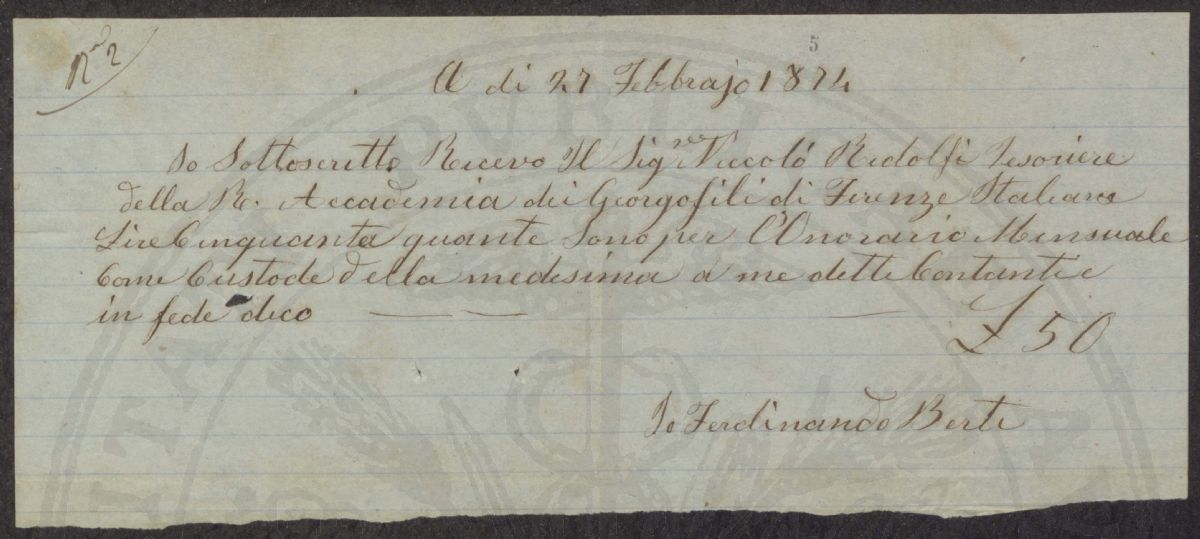 N.º 2
5
A di 27 Febbrajo 1874
Io Sottoscritto Ricevo Il Sig.re Niccoló Ridolfi Tesoriere
della R. Accademia dei Georgofili di Firenze Italiane
Lire Cinquanta quante Sono per L'Onorario Mensuale
Come Custode della medesima a me dette Contanti e
in fede dico — — —
£ 50
Io Ferdinando Berti